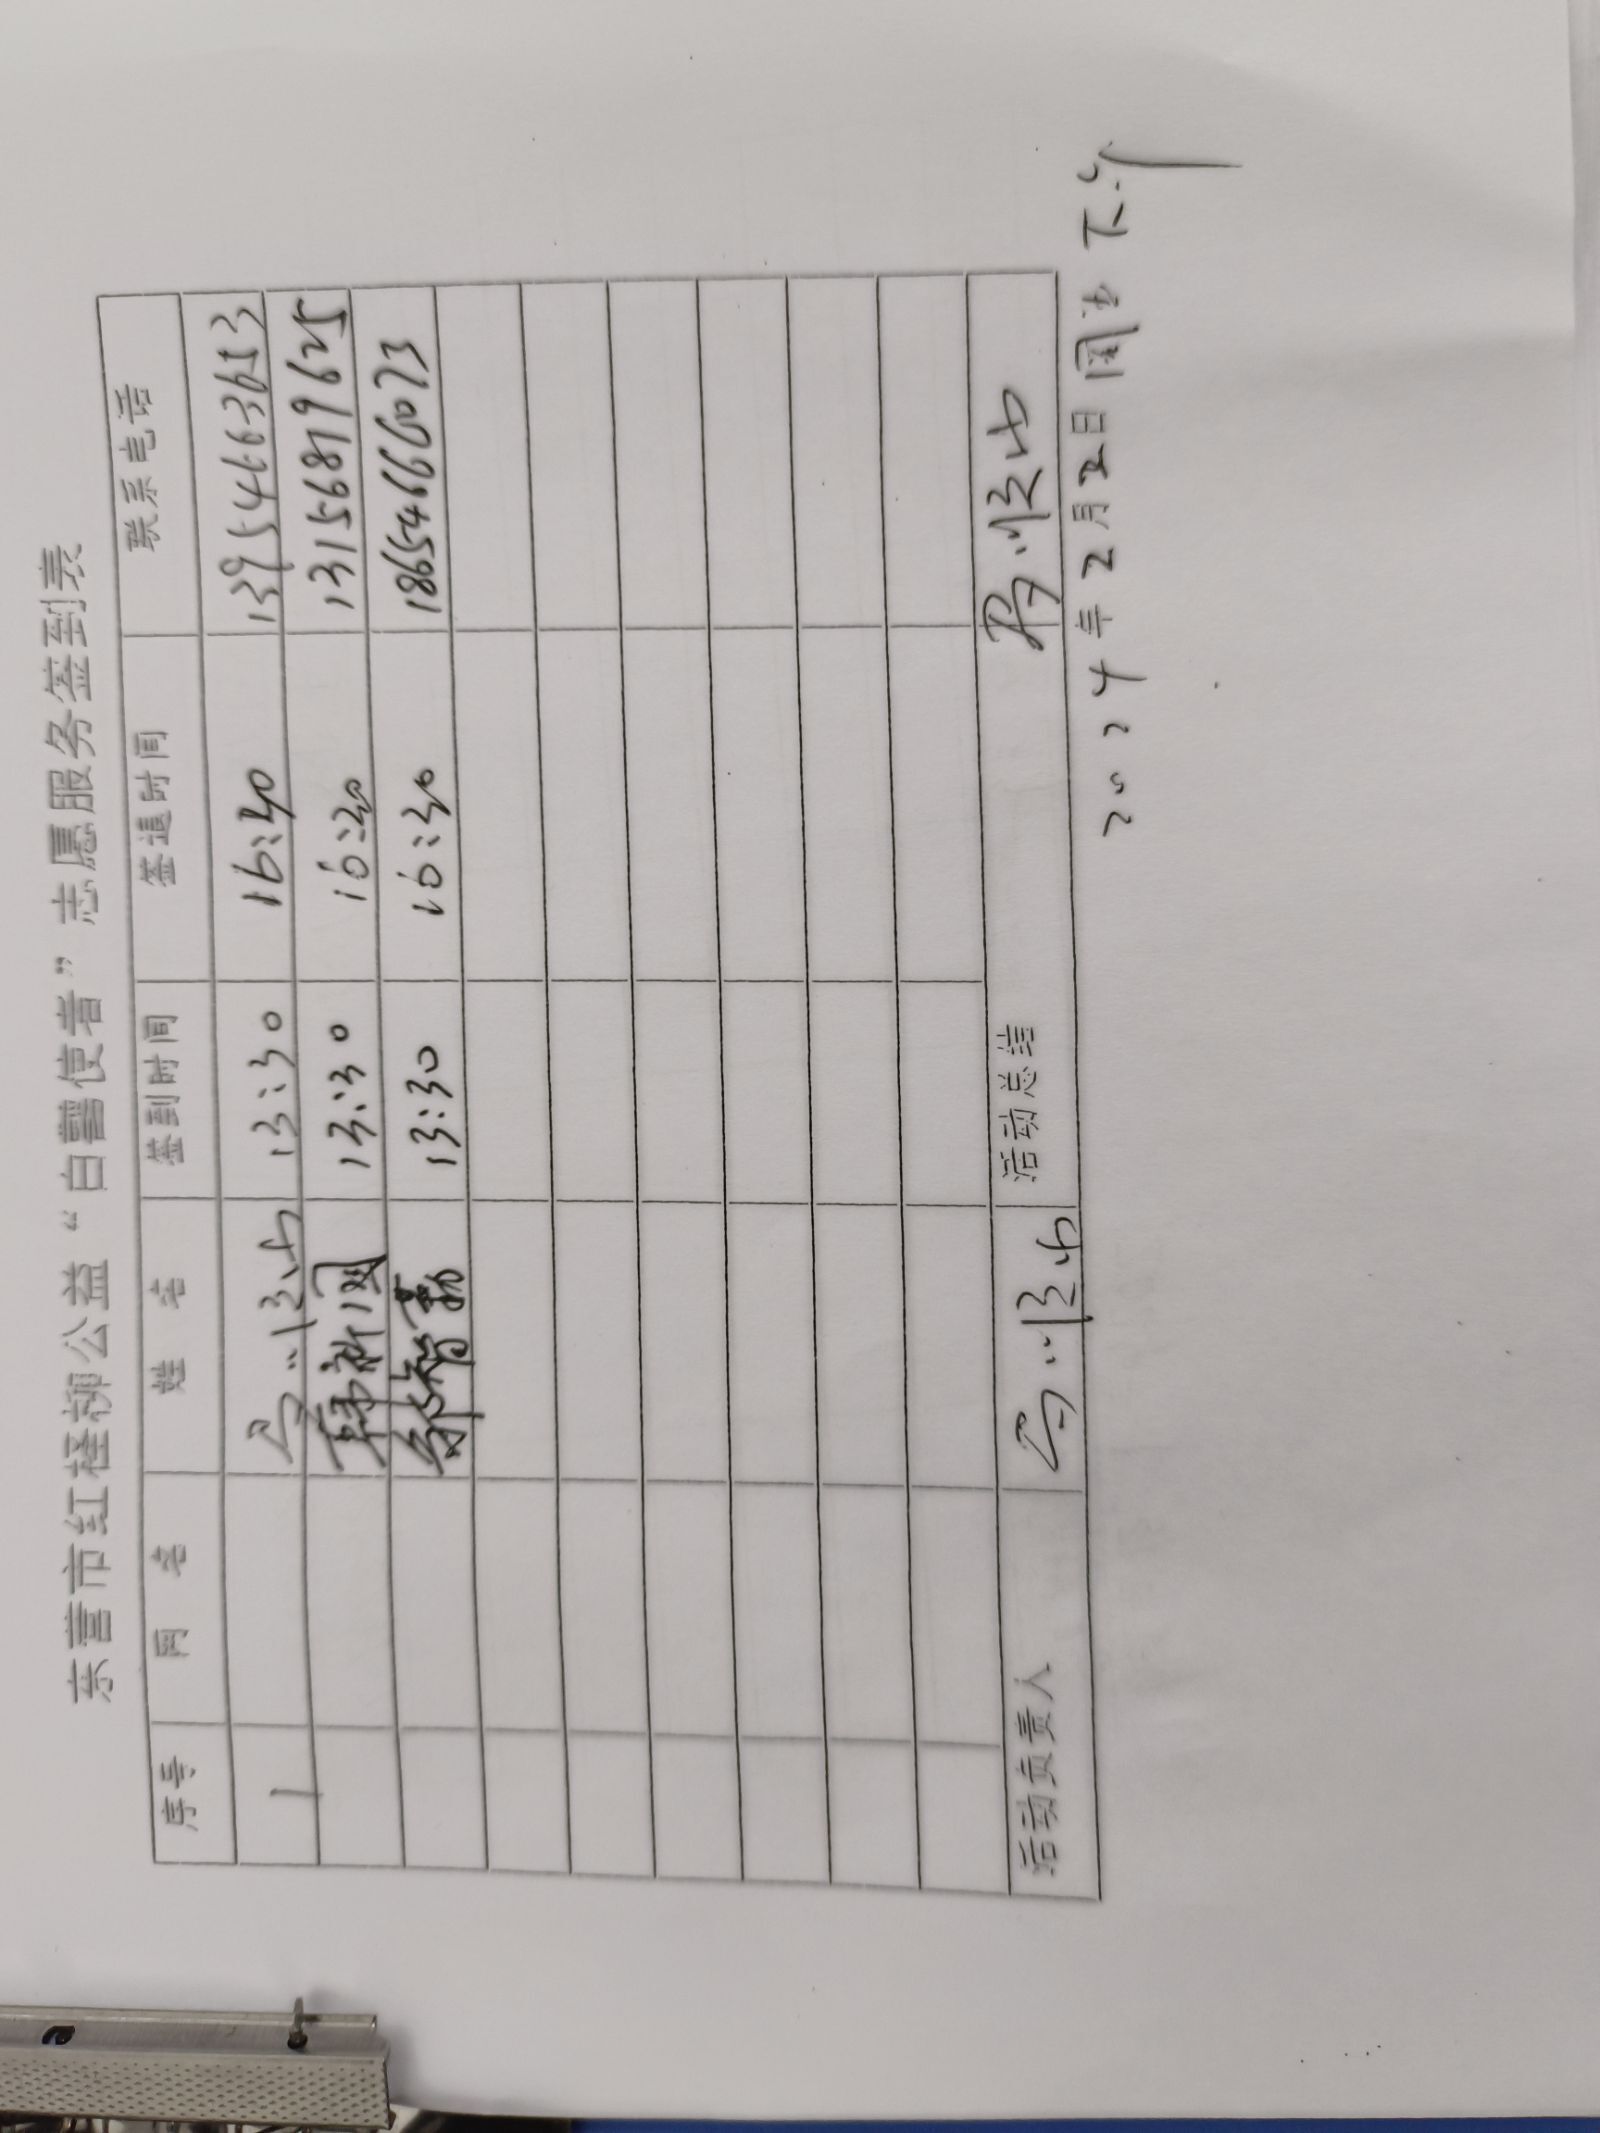 东营市红柽柳公益“白鹭使者”志愿服务签到表
序号 网名 姓名 签到时间 签退时间 联系电话
1 13:30 16:40 13954663653
韩新国 13:30 16:30 13156819625
徐智勤 13:30 16:30 18654666073
活动负责人 活动总结
2024年2月2日周五 下午